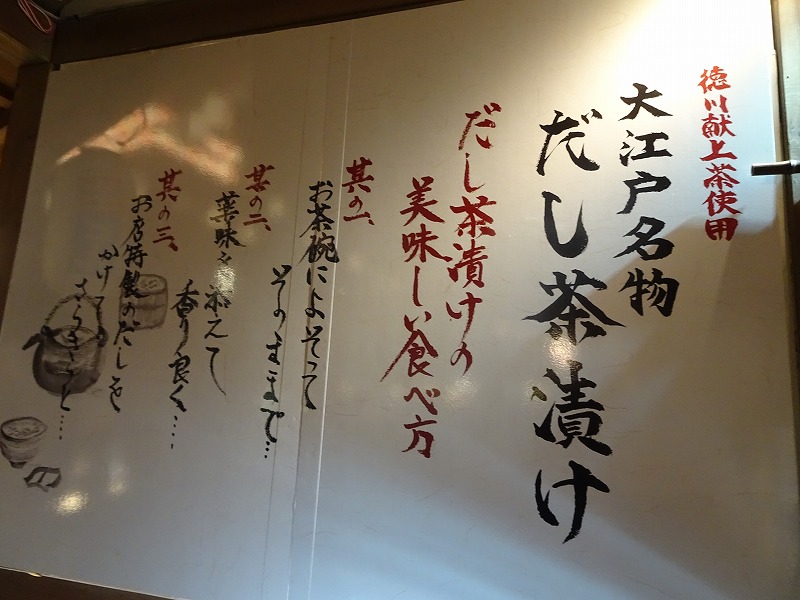 徳川献上茶使用
大江戸名物
だし茶漬け
だし茶漬けの
美味しい食べ方
其の一、
お茶碗によそって
そのままで…
其の二、
薬味を添えて
香り良く…
其の三、
お店特製のだしを
かけて
さらさらと…